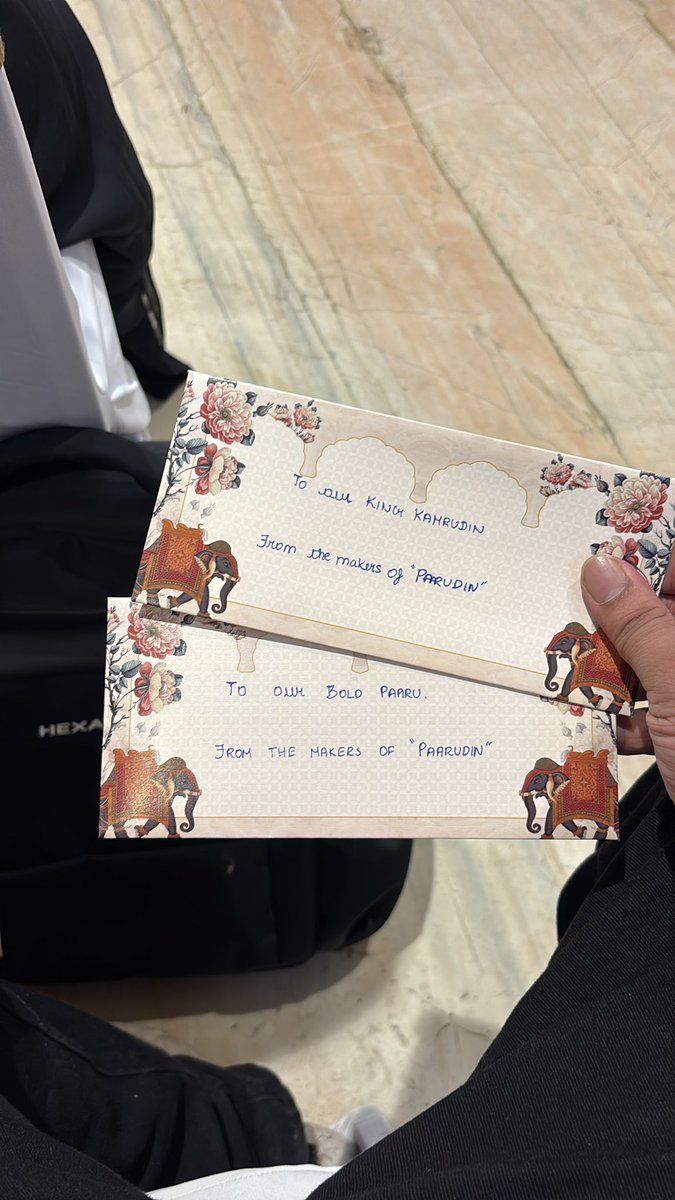 To our KING KAMRUDIN
From the makers of "PAARUDIN"
To our BOLD PAARU.
FROM THE MAKERS OF "PAARUDIN"
HEXA